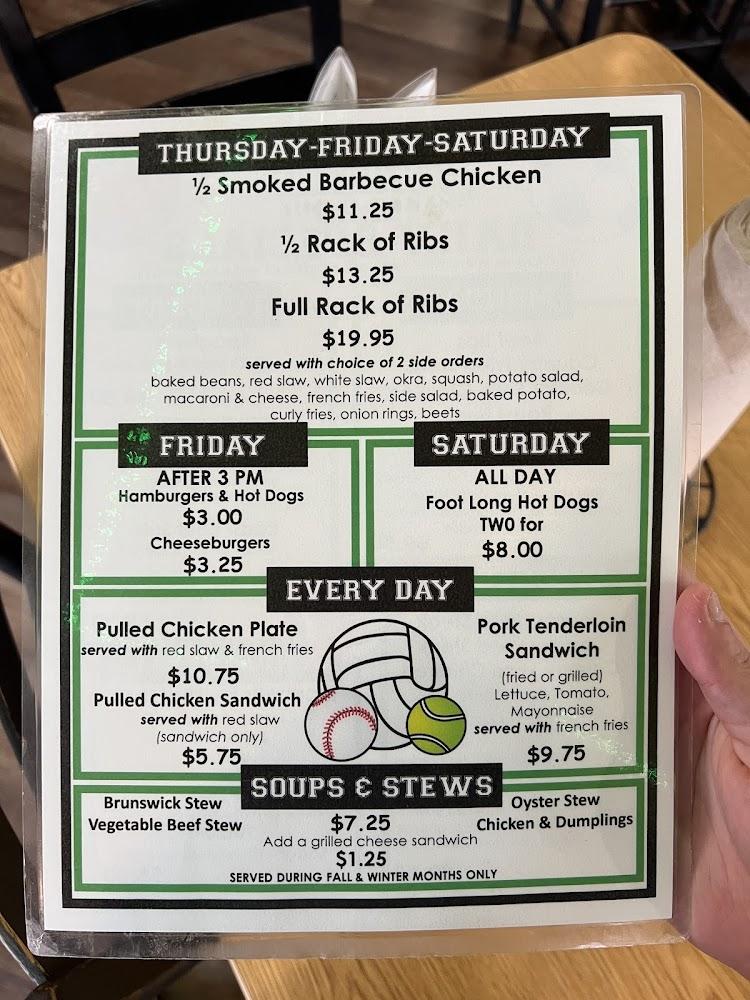 THURSDAY-FRIDAY-SATURDAY
½ Smoked Barbecue Chicken
$11.25
½ Rack of Ribs
$13.25
Full Rack of Ribs
$19.95
served with choice of 2 side orders
baked beans, red slaw, white slaw, okra, squash, potato salad,
macaroni & cheese, french fries, side salad, baked potato,
curly fries, onion rings, beets
FRIDAY
AFTER 3 PM
Hamburgers & Hot Dogs
$3.00
Cheeseburgers
$3.25
SATURDAY
ALL DAY
Foot Long Hot Dogs
TWO for
$8.00
EVERY DAY
Pulled Chicken Plate
served with red slaw & french fries
$10.75
Pulled Chicken Sandwich
served with red slaw
(sandwich only)
$5.75
Pork Tenderloin
Sandwich
(fried or grilled)
Lettuce, Tomato,
Mayonnaise
served with french fries
$9.75
SOUPS & STEWS
Brunswick Stew
Vegetable Beef Stew
Oyster Stew
Chicken & Dumplings
$7.25
Add a grilled cheese sandwich
$1.25
SERVED DURING FALL & WINTER MONTHS ONLY